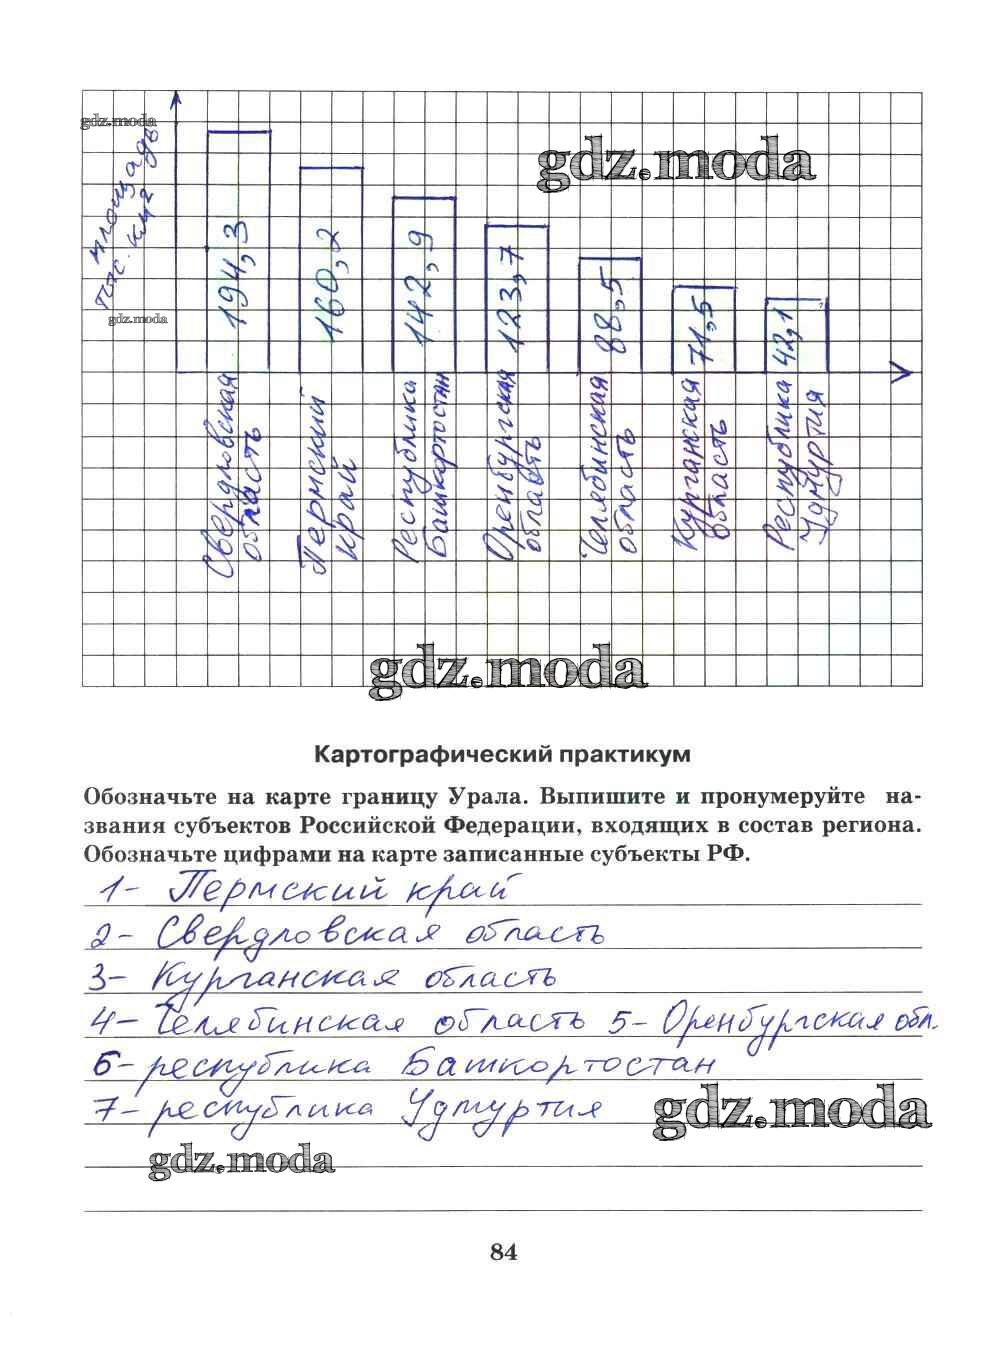 gdz.moda
площадь
тыс. км2
gdz.moda
gdz.moda
194,3
160,2
142,9
123,7
88,5
71,5
42,1
Свердловская
область
Пермский
край
Республика
Башкортостан
Оренбургская
область
Челябинская
область
Курганская
область
Республика
Удмуртия
gdz.moda
Картографический практикум
Обозначьте на карте границу Урала. Выпишите и пронумеруйте на-
звания субъектов Российской Федерации, входящих в состав региона.
Обозначьте цифрами на карте записанные субъекты РФ.
1- Пермский край
2- Свердловская область
3- Курганская область
4- Челябинская область 5- Оренбургская обл.
6- республика Башкортостан
7- республика Удмуртия
gdz.moda
gdz.moda
84